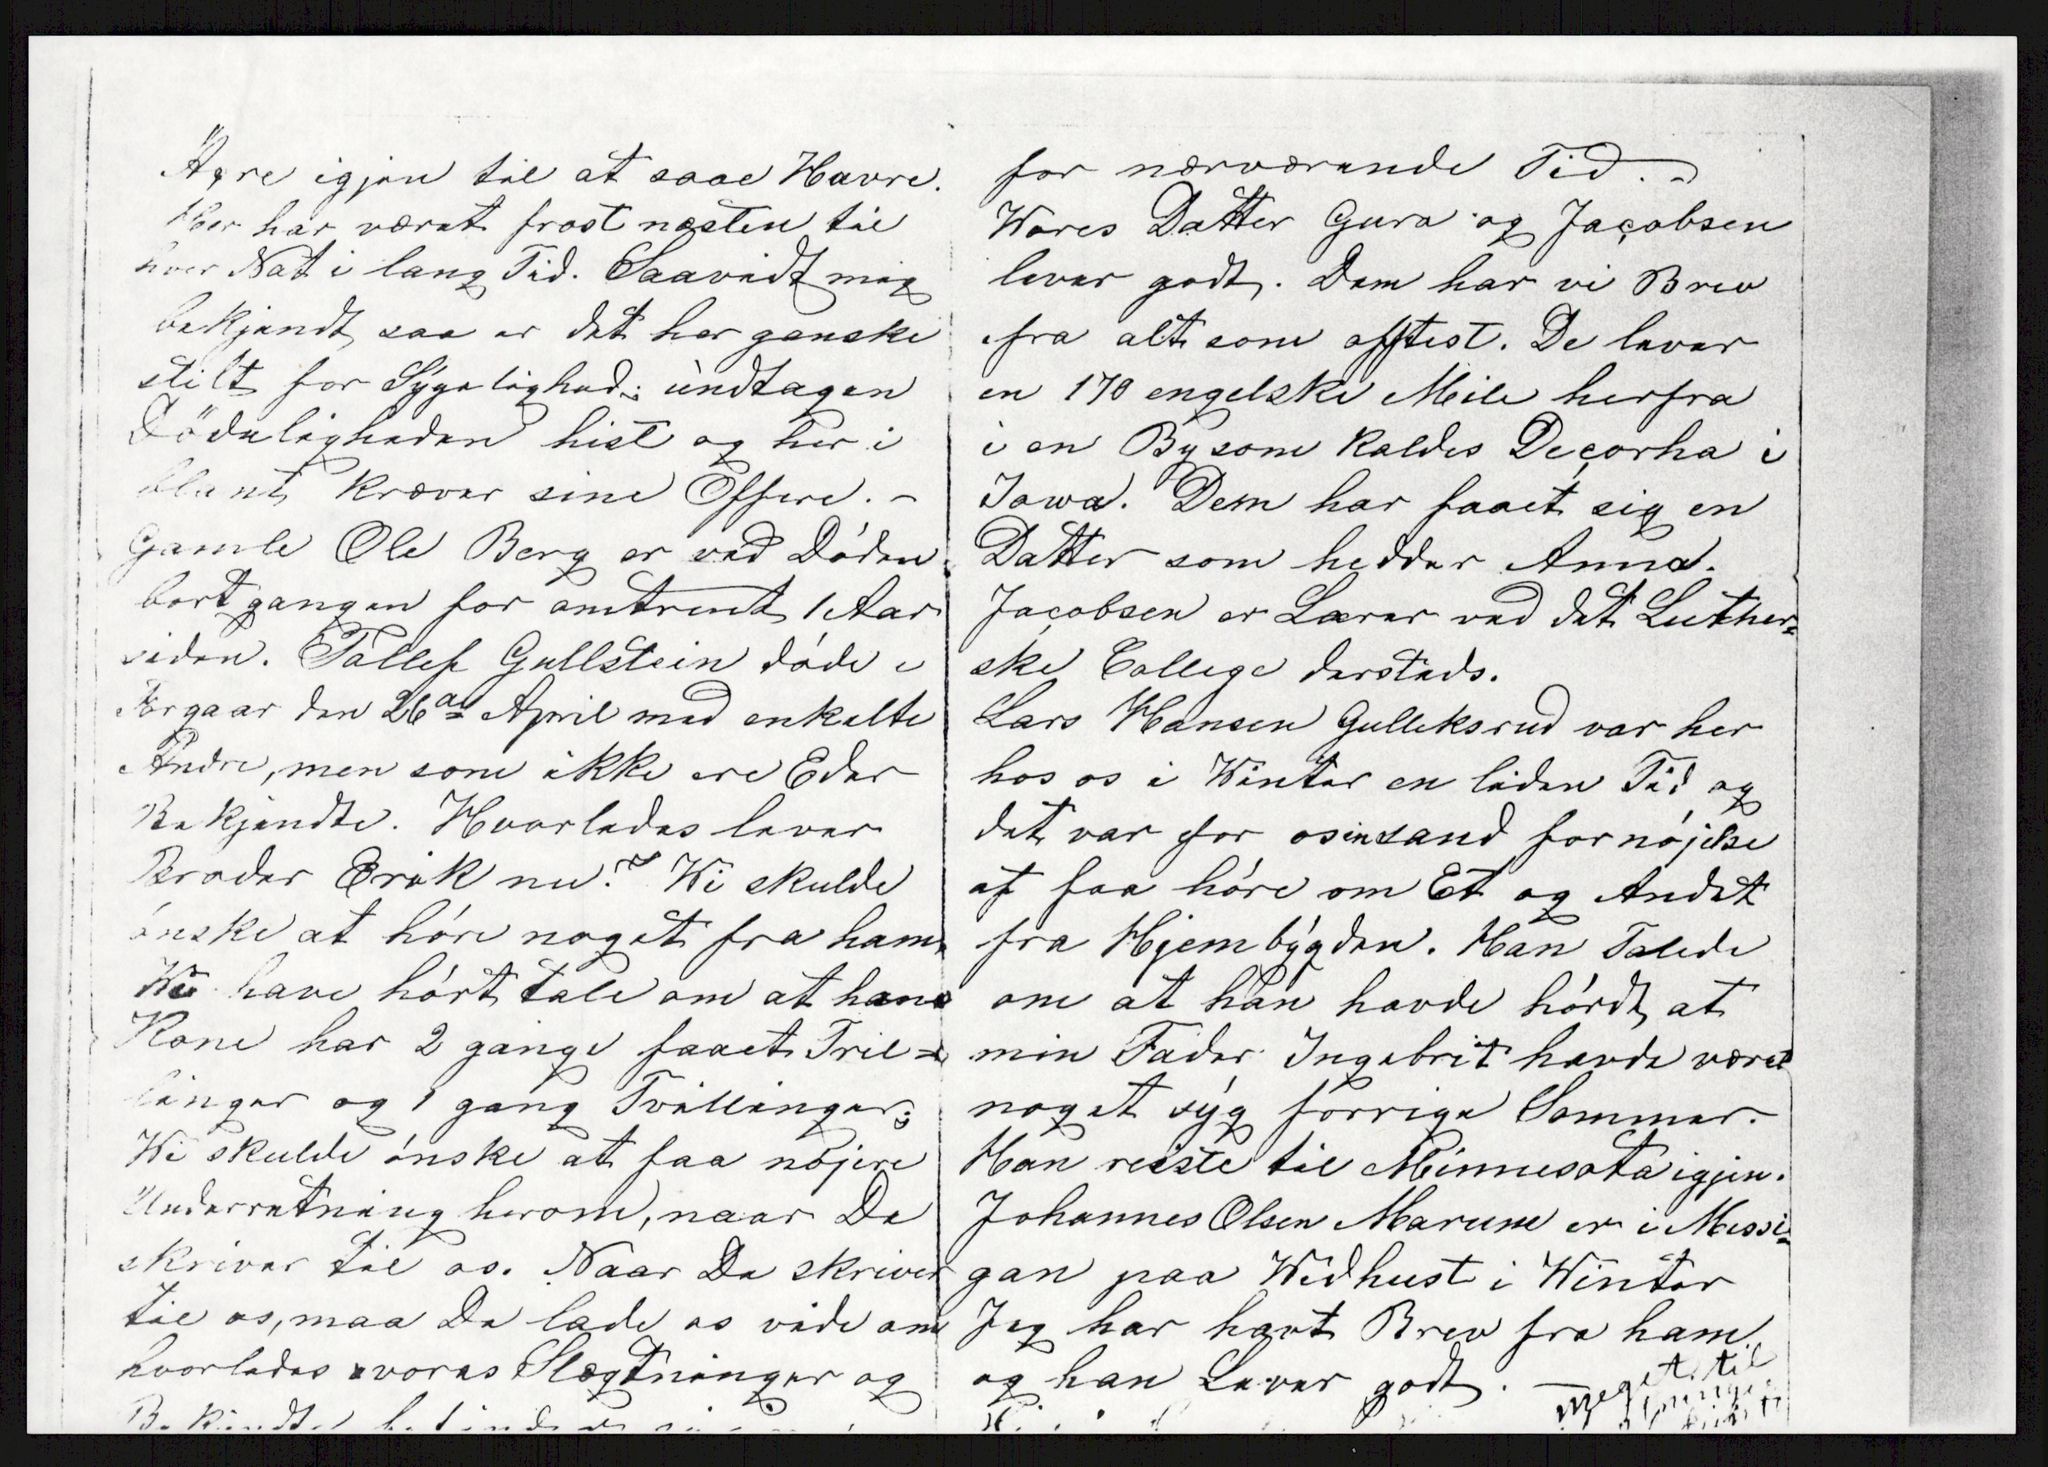 Agre igjen til at saae Havre.
Her har været frost næsten til
hver Nat i lang Tid. Saavidt mig
bekjendt saa er det her ganske
stilt for Sygelighed; undtagen
Dödeligheden hist og her i
blant kræver sine Offere. –
Gamle Ole Berg er ved Döden
bortgangen for omtrent 1 Aar
siden. Tollef Gullstein döde i
Forgaar den 26de April med enkelte
Andre, men som ikke ere Eder
Bekjendte. Hvorledes lever
Broder Erik nu? Wi skulde
önske at höre noget fra ham.
Wi have hört tale om at hans
Kone har 2 gange faaet Tril-
linger og 1 gang Tvillinger;
Wi skulde önske at faa nöjere
Underretning herom, naar De
skriver til os. Naar De skriver
til os, maa De lade os vide om
hvorledes vores Slægtninger og
Bekjendte befinder
for nærværende Tid. –
Wores Datter Guro og Jacobsen
lever godt. Dem har vi Brev
fra alt som oftest. De lever
en 170 engelske Mile herfra
i en By som kaldes Decorha i
Iowa. Dem har faaet sig en
Datter som hedder Anna.
Jacobsen er Lærer ved det Luther-
ske College dersteds.
Lars Hansen Gulleksrud var her
hos os i Winter en liden Tid og
det var for os en sand fornöjelse
at faa höre om Et og Andet
fra Hjembygden. Han Talede
om at han havde hördt at
min Fader Ingebrit havde været
noget syg forrige Sommer.
Han reiste til Minnesota igjen.
Johannes Olsen Marum er i Missi-
gan paa Widhust i Winter
Jeg har havt Brev fra ham
og han Lever godt. –
meget til